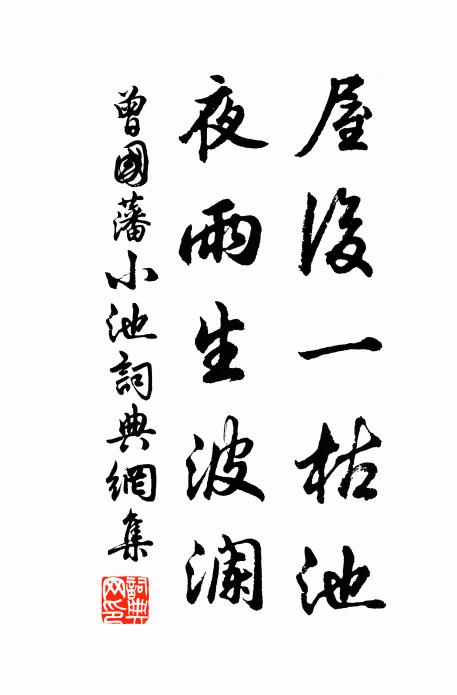 屋後一枯池
夜雨生波瀾
曾國藩小池詞典網集
詞典網印